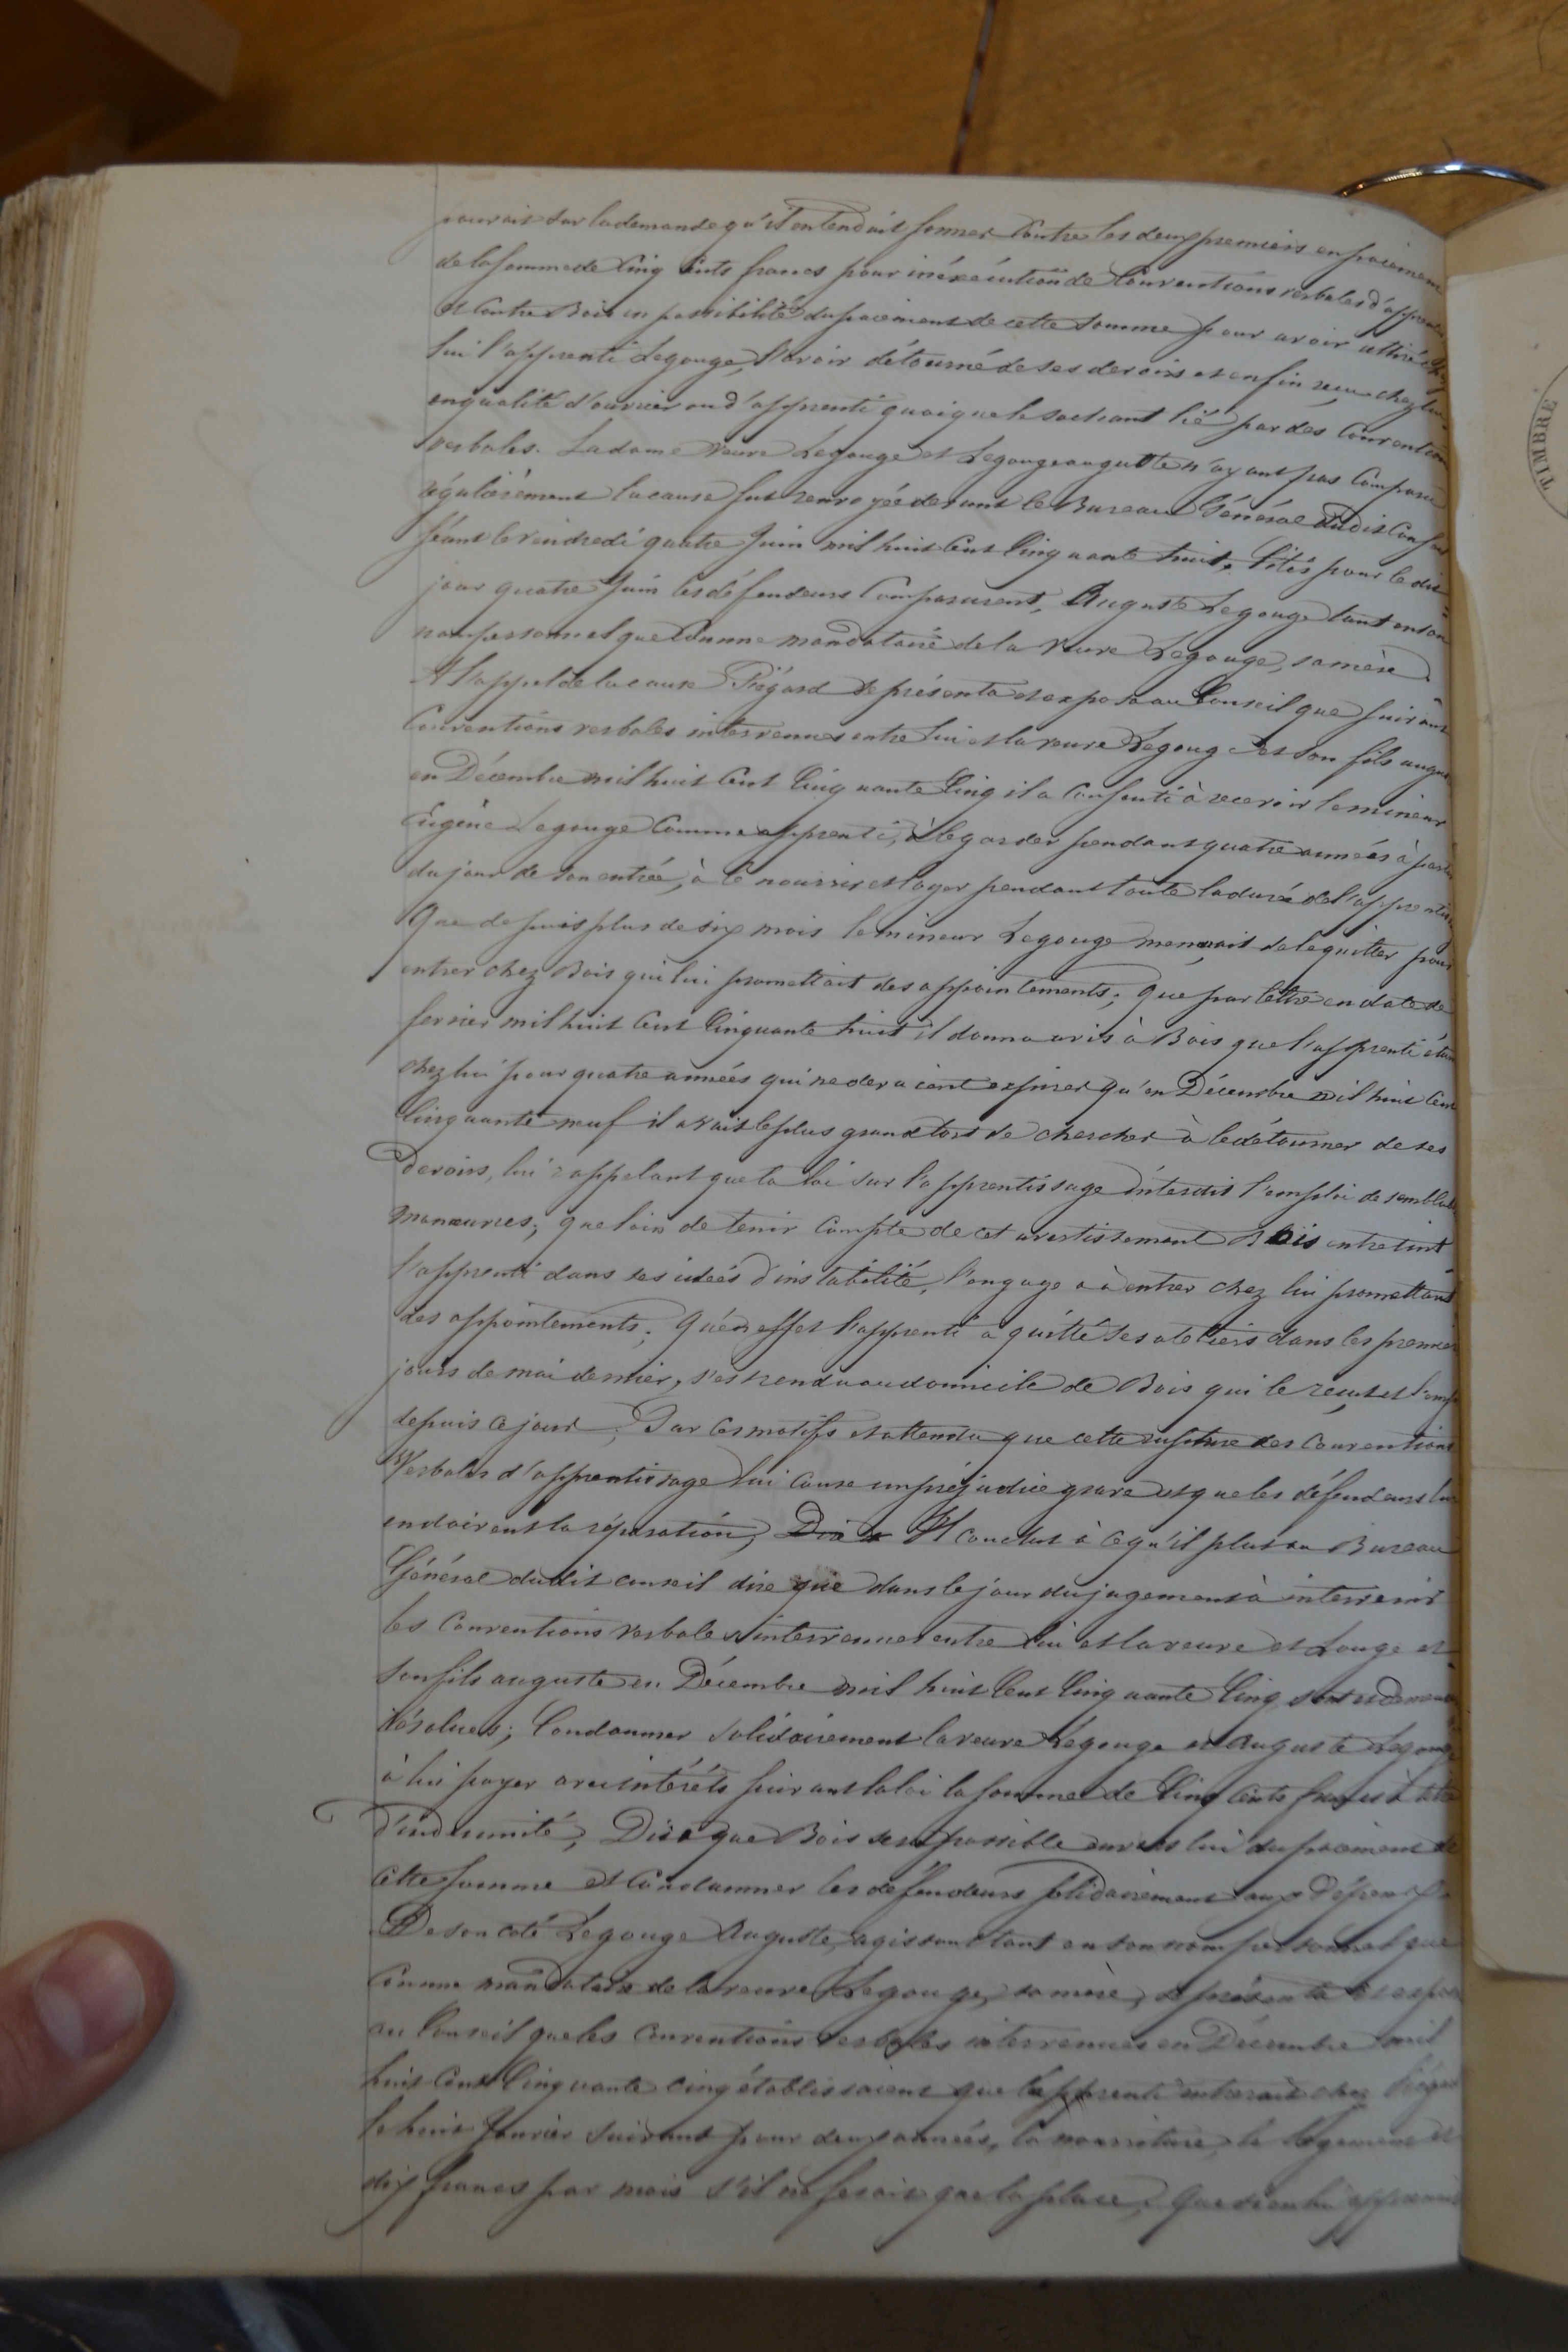 pouvait sur la demande qu'il entendait former contre les deux premiers en paiement
de la somme de Cinq Cents francs pour inéxécution de Conventions verbales d'appren
et Contre Bois en possibilité du paiement de cette Somme pour avoir attiré chez
lui l'apprenti Legouge, l'avoir détourné de ses devoirs et enfin reçu chez lui
en qualité d'ouvrier ou d'apprenti quoique le sachant lié par des Convention
verbales. La dame veuve Legouge et Legouge auguste n'ayant pas Comparu
régulièrement la cause fut renvoyée devant le Bureau Général dudit Conseil
séant le vendredi quatre Juin mil huit Cent Cinquante huit. Cités pour le dit
jour quatre Juin les défendeurs Comparurent, Auguste Legouge tant en son
nom personnel que Comme mandataire de la Veuve Legouge, sa mère
A l'appel de la cause Piégard se présenta et exposa au Conseil que suivant
Conventions verbales intervenues entre lui et la veuve Legouge et son fils augus
en Décembre mil huit Cent Cinquante Cinq il a Consenti à recevoir le mineur
Eugène Legouge Comme apprenti, à le garder pendant quatre années à partir
du jour de son entrée, à le nourrir et loger pendant toute la durée de l'apprentis
Que depuis plus de six mois le mineur Legouge menaçait de le quitter pour
entrer chez Bois qui lui promettait des appointements; Que par lettre en date de
fevrier mil huit Cent Cinquante huit il donna avis à Bois que l'apprenti étan
chez lui pour quatre années qui ne devaient expirer qu'en Décembre mil huit Cent
Cinquante neuf il avait le plus grand tort de chercher à le détourner de ses
devoirs, lui rappelant que la loi sur l'apprentissage interdit l'emploi de semblabl
manœuvres; que loin de tenir Compte de cet avertissement Bois entretint
l'apprenti dans ses idées d'instabilité, l'engagea à entrer chez lui promettant
des appointements; Qu'en effet l'apprenti a quitté ses ateliers dans les premier
jours de mai dernier, s'est rendu au domicile de Bois qui le reçut et l'emp
depuis ce jour; Par ces motifs et attendu que cette rupture des Conventions
Verbales d'apprentissage lui cause un préjudice grave et que les défendeurs lui
en doivent la réparation, Il conclut à ce qu'il plut au Bureau
Général dudit conseil dire que dans le jour du jugement à intervenir
les Conventions verbales intervenues entre lui et la veuve et Louge et
son fils auguste en Décembre mil huit Cent Cinquante Cinq sont et demeur
résolues; Condamner solidairement la veuve Legouge et Auguste Legouge
à lui payer avec intérêts suivant la loi la somme de Cinq Cents francs à titre
d'indemnité, Dire que Bois sera possible envers lui du paiement de
cette somme et Condamner les défendeurs solidairement aux dépens
De son coté Legouge Auguste, agissant tant en son nom personnel que
Comme mandataire de la veuve Legouge, sa mère, se présenta et exposa
au Conseil que les Conventions verbales intervenues en Décembre mil
huit Cent Cinquante cinq établissaient que l'apprenti entrerait chez Piégard
le huit Janvier suivant pour deux années, la nourriture, le logement et
dix francs par mois s'il ne faisait que la place,